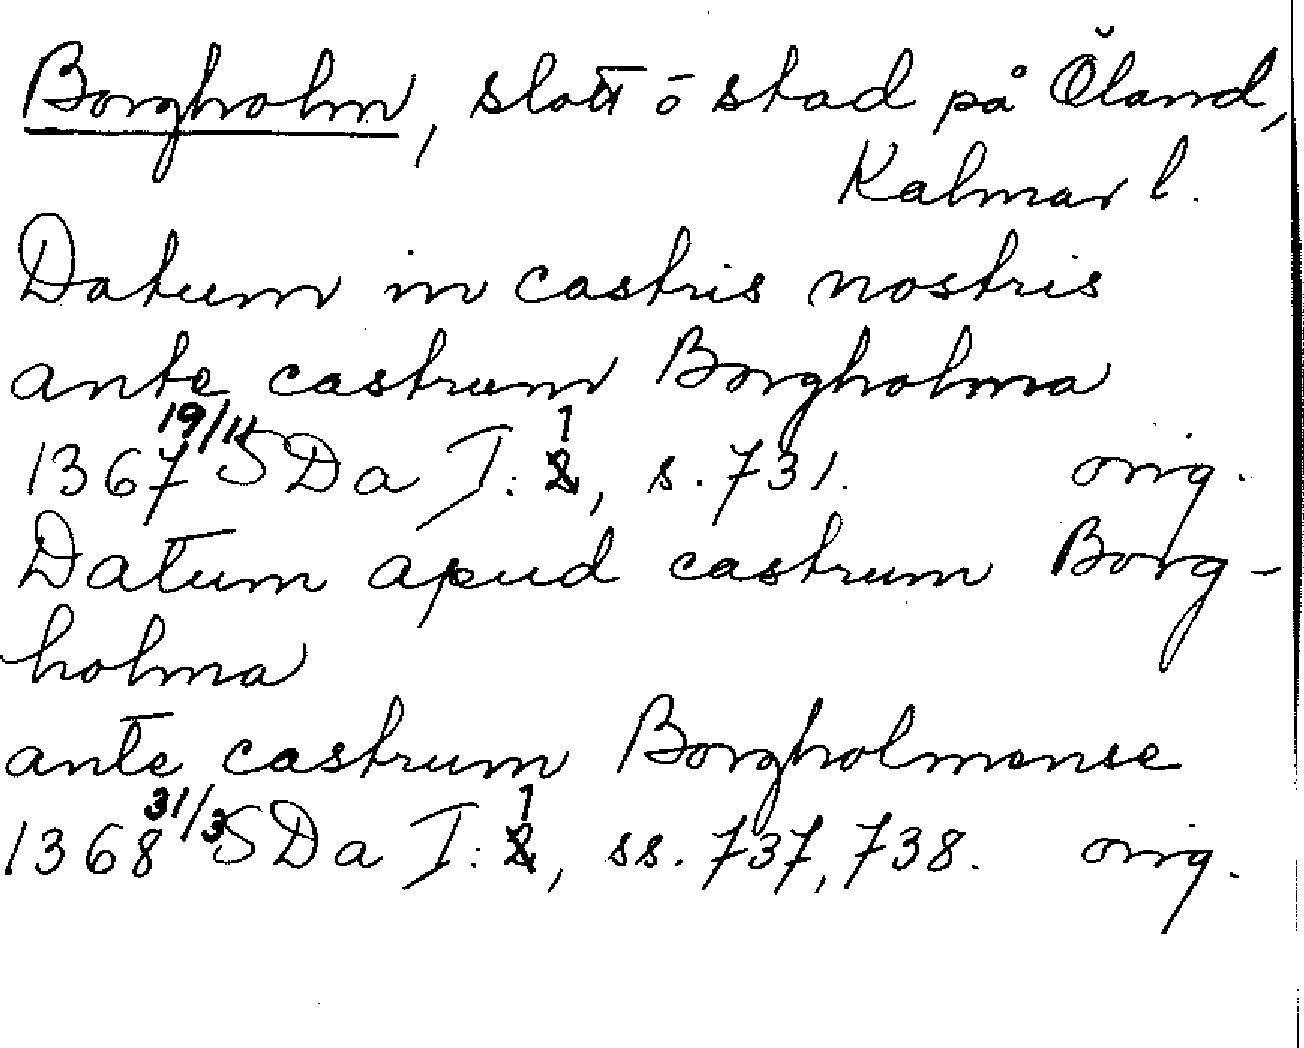 Borgholm, slott o stad på Öland,
Kalmar l.
Datum in castris nostris
ante castrum Borgholma
1367 19/11 SDa I: 1, s. 731. orig.
Datum apud castrum Borg-
holma
ante castrum Borgholmense
1368 31/3 SDa I: 1, ss. 737, 738. orig.